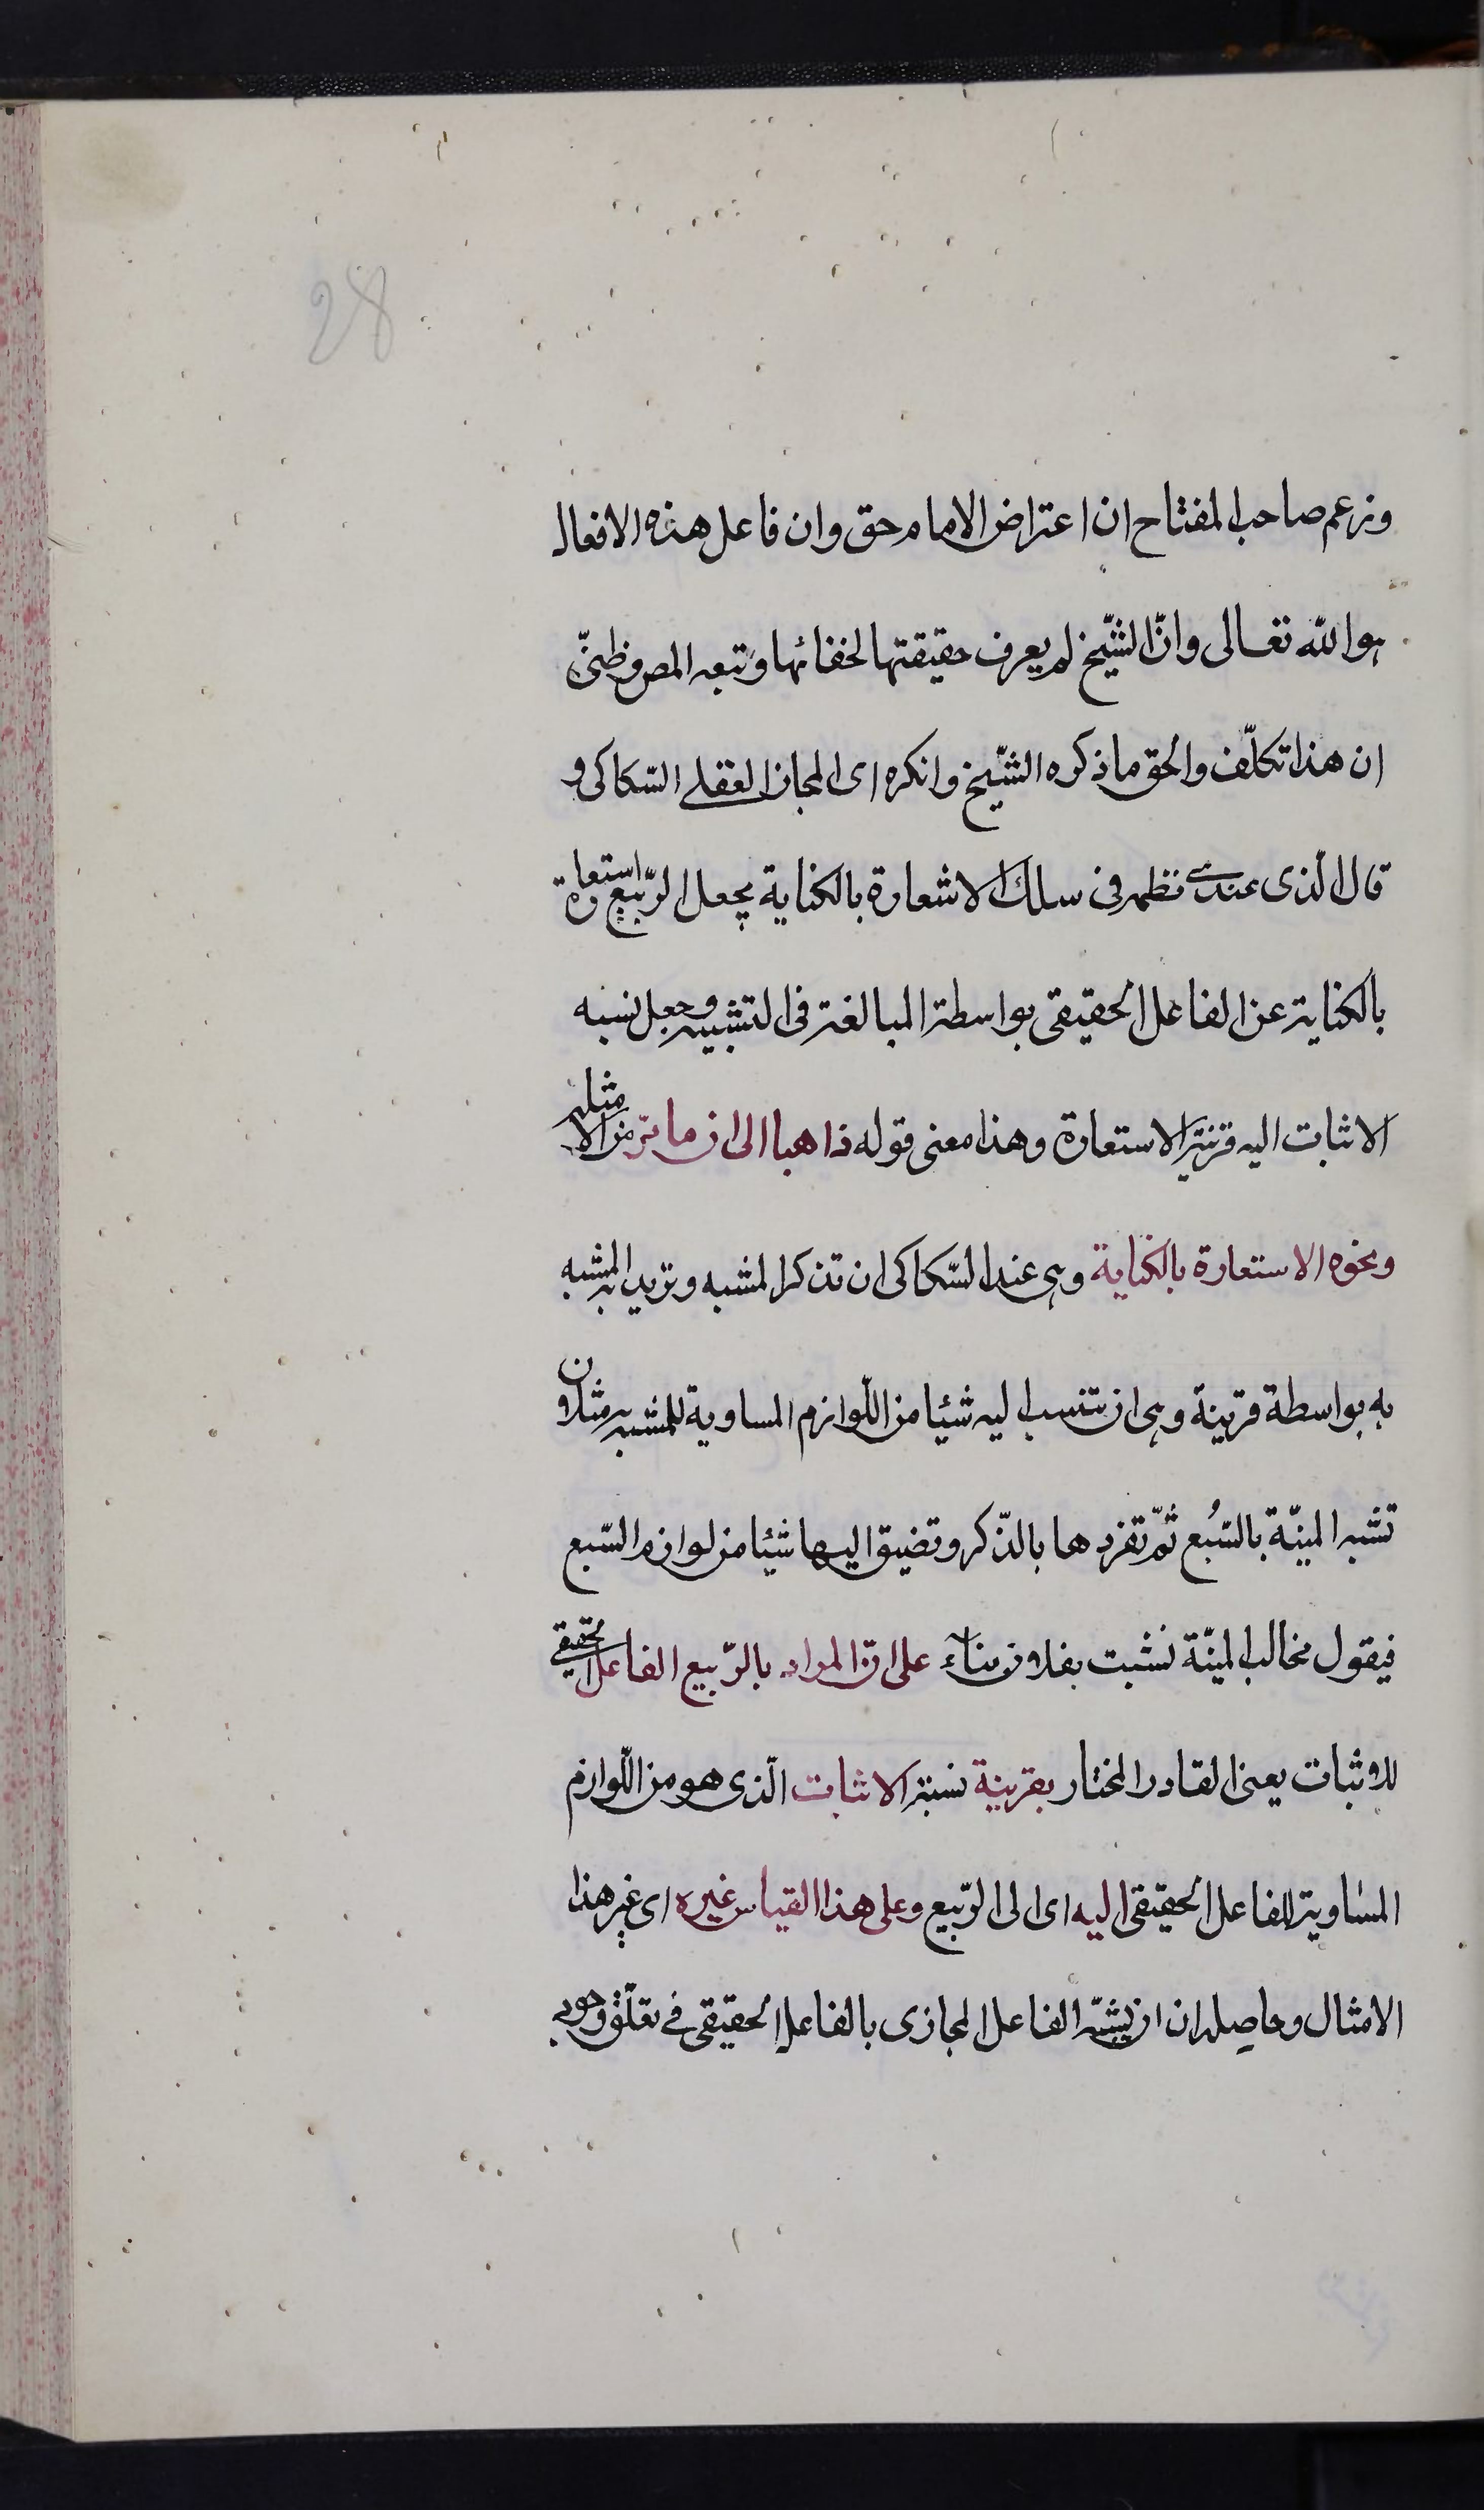 28
وزعم صاحب المفتاح ان اعتراض الامام حق وان فاعل هذه الافعال
هو الله تعالى وانّ الشّيخ لم يعرف حقيقتها لخفائها وتبعه المص وظنّى
ان هذا تكلّف والحق ما ذكره الشّيخ وانكره اى المجاز العقلے السّكاكى و
قال الّذى عندى نظمه فى سلك الاشعارة بالكناية بجعل الرّبيع استعارة
بالكناية عن الفاعل الحقيقى بواسطة المبالغة فى التشبيه وجعل نسبه
الانبات اليه قرينة الاستعارة وهذا معنى قوله ذاهبا الى ان ما مرّ من الامثلة
ونحوه الاستعارة بالكناية وهى عند السّكاكى ان تذكر المشبه وتريد المشبه به
به بواسطة قرينة وهى ان تنسب اليه شيئا من اللّوازم المساوية للمشبه به مثلا ون
تشبه المنيّة بالسّبُع ثمّ تفردها بالذّكر وتضيق اليها شيئا من لوازم السّبع
فيقول مخالب المنيّة نشبت بفلان بناء على انّ المراد بالرّبيع الفاعل الحقيقى
للانبات يعنى القادر المختار بقرينة نسبة الانبات الّذى هو من اللّوازم
المساوية للفاعل الحقيقى اليه اى الى الرّبيع وعلى هذا القياس غيره اى غير هذا
الامثال وحاصله ان ان يشبّه الفاعل المجازى بالفاعل الحقيقى فى تعلّق وجود